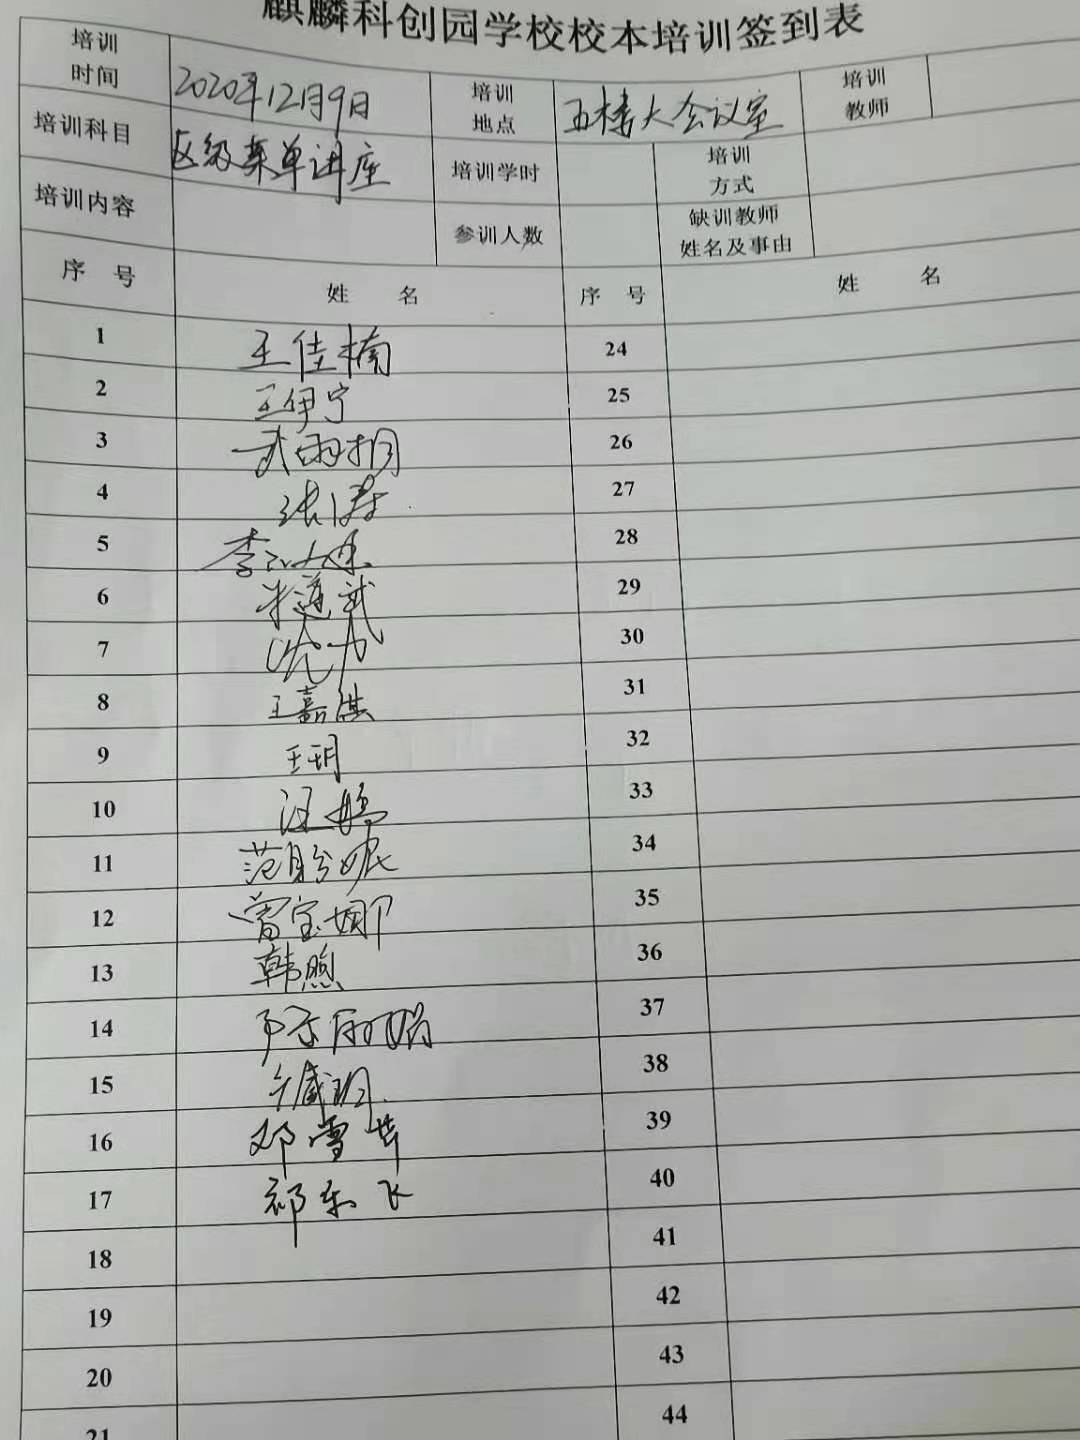 麒麟科创园学校校本培训签到表
培训时间 2020年12月9日 培训地点 五楼大会议室 培训教师
培训科目 区级菜单讲座 培训学时 培训方式
培训内容 参训人数 缺训教师姓名及事由
序号 姓名 序号 姓名
1 王佳楠 24
2 王伊宁 25
3 武雨桐 26
4 张涛 27
5 李 28
6 29
7 沈力 30
8 王嘉淇 31
9 王玥 32
10 汪 33
11 范盼妮 34
12 曾宝娜 35
13 韩煦 36
14 37
15 38
16 邓雪芹 39
17 祁东飞 40
18 41
19 42
20 43
21 44